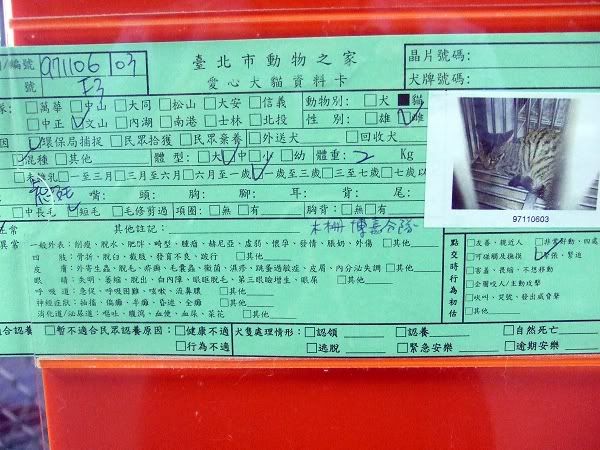 編號 971106 03 臺北市動物之家 晶片號碼:
號 F3 愛心犬貓資料卡 犬牌號碼:
□萬華 □中山 □大同 □松山 □大安 □信義 動物別: □犬 ■貓
□中正 □文山 □內湖 □南港 □士林 □北投 性 別: □雄 □雌
□環保局捕捉 □民眾拾獲 □民眾棄養 □外送犬 □回收犬
□混種 □其他 體 型: □大 □中 □小 □幼 體重: 2 Kg
□未離乳 □一至三月 □三月至六月 □六月至一歲 □一歲至三歲 □三至七歲 □七歲以
嘴: 頭: 胸: 腳: 耳: 背: 尾:
□中長毛 □短毛 □毛修剪過 項圈: □無 □有 胸背: □無 □有
正常 其他註記: 木柵
異常 一般外表: 削瘦、脫水、肥胖、畸型、腫瘤、赫尼亞、虛弱、懷孕、發情、脹奶、外傷 □其他
四 肢: 骨折、跛行、截肢、發育不良、脫臼 □其他
皮 膚: 外寄生蟲、脫毛、疥癬、毛囊蟲、黴菌、濕疹、跳蚤過敏症、皮屑、內分泌失調 □其他
眼 睛: 失明、萎縮、脫出、白內障、眼瞼脫毛、第三眼瞼增生、眼屎 □其他
呼 吸 道: 急促、呼吸困難、咳嗽、流鼻膿 □其他
神經症狀: 抽搐、偏癱、半癱、昏迷、全癱 □其他
消化道/泌尿道: 嘔吐、腹瀉、血便、血尿、菜花 □其他
點交時行為初估
□友善、親近人 □非常好動、四處
□可碰觸及撫摸 □緊張、緊迫
□害羞、畏縮、不想移動
□企圖咬人/主動攻擊
□吠叫、哭號、發出威脅聲
□其他
97110603
適合認養 □暫不適合民眾認養原因: □健康不適 犬隻處理情形: □認領 □認養 □自然死亡
□行為不適 □逃脫 □緊急安樂 □逾期安樂